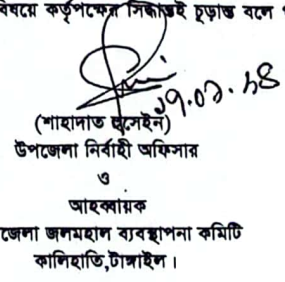 বিষয়ে কর্তৃপক্ষের সিদ্ধান্তই চূড়ান্ত বলে
(শাহাদাত হুসেইন)
উপজেলা নির্বাহী অফিসার
ও
আহবায়ক
জেলা জলমহাল ব্যবস্থাপনা কমিটি
কালিহাতি,টাঙ্গাইল।